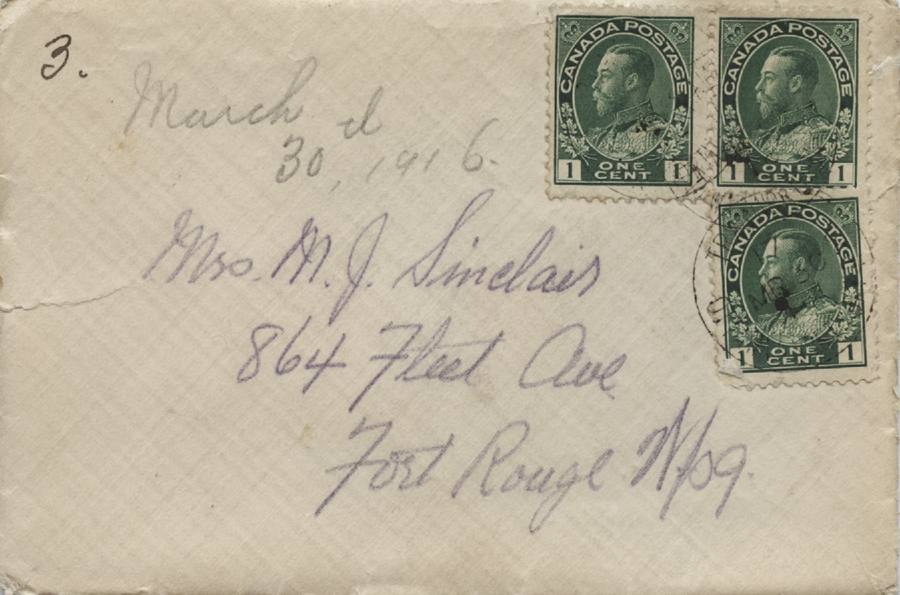 3.
March d
30, 1916.
Mrs. M. J. Sinclair
864 Fleet Ave
Fort Rouge Wpg.
CANADA POSTAGE
1 ONE CENT 1
CANADA POSTAGE
1 ONE CENT 1
CANADA POSTAGE
1 ONE CENT 1
MR 30